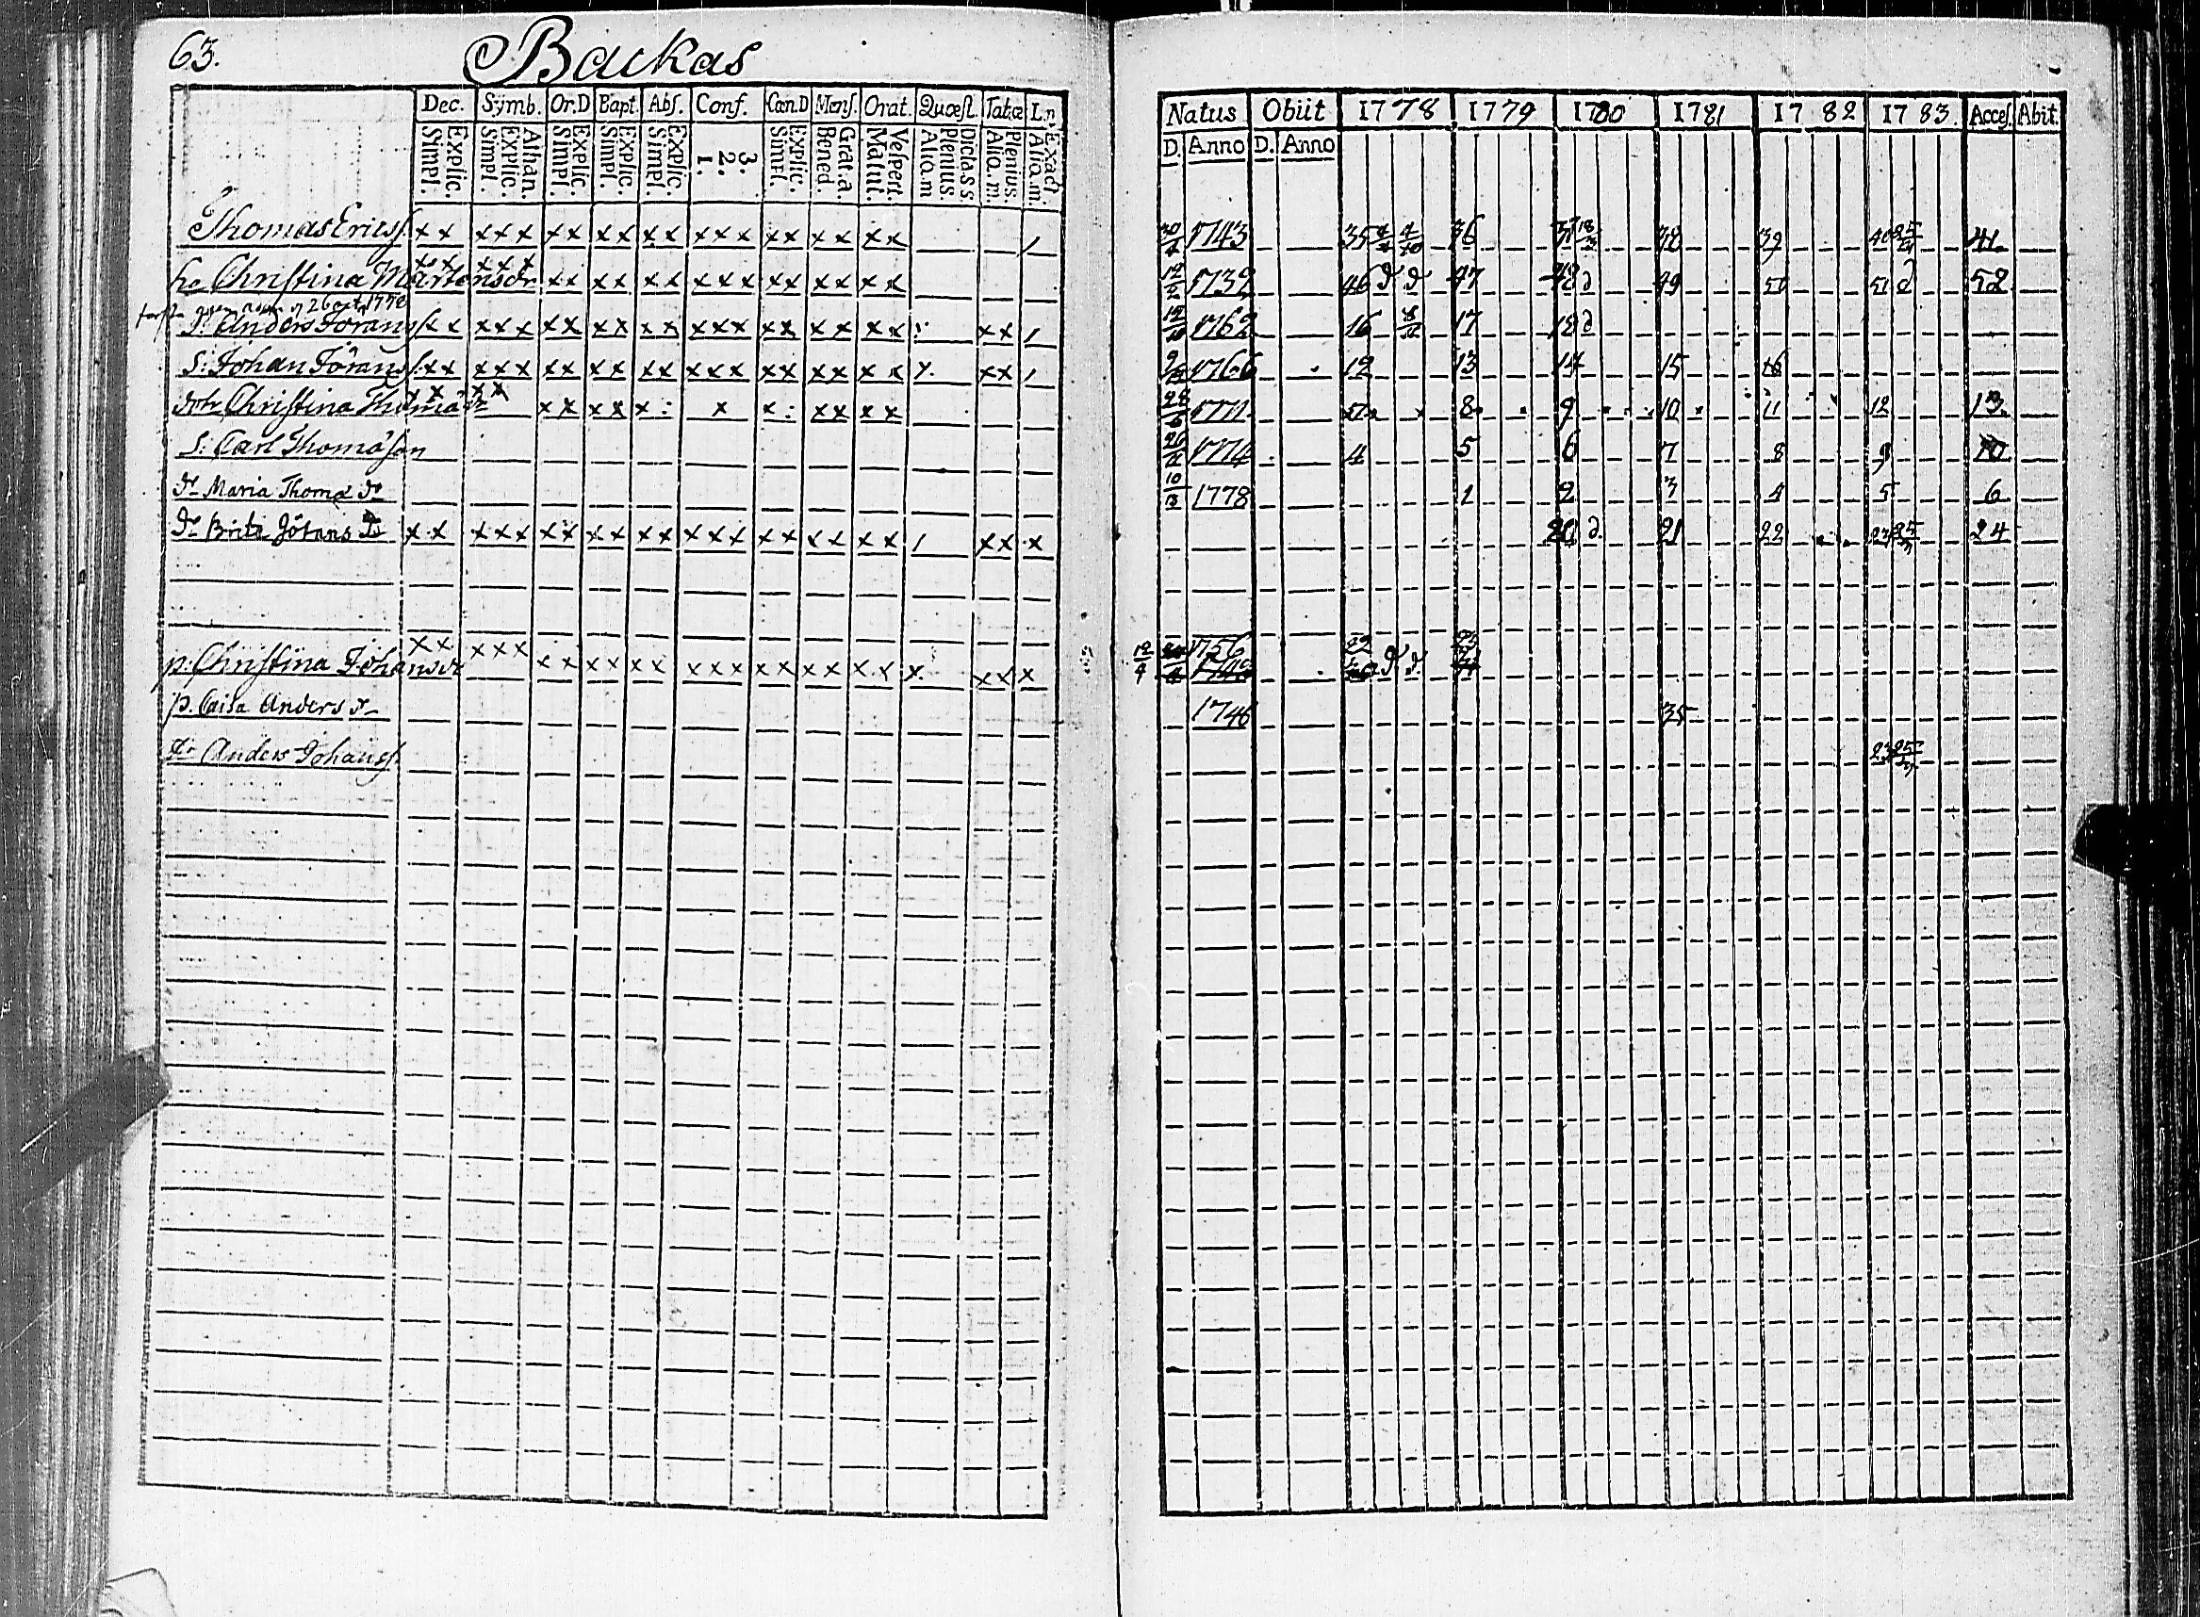 63. Backas
Dec. Symb. Or.D Bapt. Abs. Conf. Can.D Mens. Orat. Quæst. Tabæ L.n
Explic. Simpl. Athan. Explic. Simpl. Explic. Simpl. Explic. Simpl. Explic. Simpl. 3. 2. 1. Explic. Simpl. Grat.a. Bened. Vespert. Matut. Dicla.s s. Plenius. Aliq.m Plenius. Aliq.m. Exact Aliq.m.
Natus Obiit 1778 1779 1780 1781 1782 1783. Acces. Abit.
D. Anno D. Anno
Thomas Ericss. x x x x x x x x x x x x x x x x x x x x 30/4 1743 35 36 38 39 41
h. Christina Mårtensdr x x x x x x x x x x x x x x x x x x x x 12/2 1732 46 d d 47 48 d 49 50 51 d 52
26 oct. 1778
s. Anders Görans x x x x x x x x x x x x x x x x x x x x x x 1762 16 17 18 d
s. Johan Görans x x x x x x x x x x x x x x x x x x x x x x 1766 12 13 14 15 16
dotr Christina Thoma dr x x x x x x x x : x x : x x x x 1771 8 9 10 11 12 13
s. Carl Thomason 1774 4 5 6 7 8 9 10
dr Maria Thoma dr 1778 1 2 3 4 5 6
dr Brita Görans dr x x x x x x x x x x x x x x x x x x x x x x x 20 d. 21 22 23 24
p. Christina Johansdr x x x x x x x x x x x x x x x x x x x x x x x x 12/4 1756 22 d d. 23
p. Caisa Anders dr 1746 35
dr Anders Johanss. 23